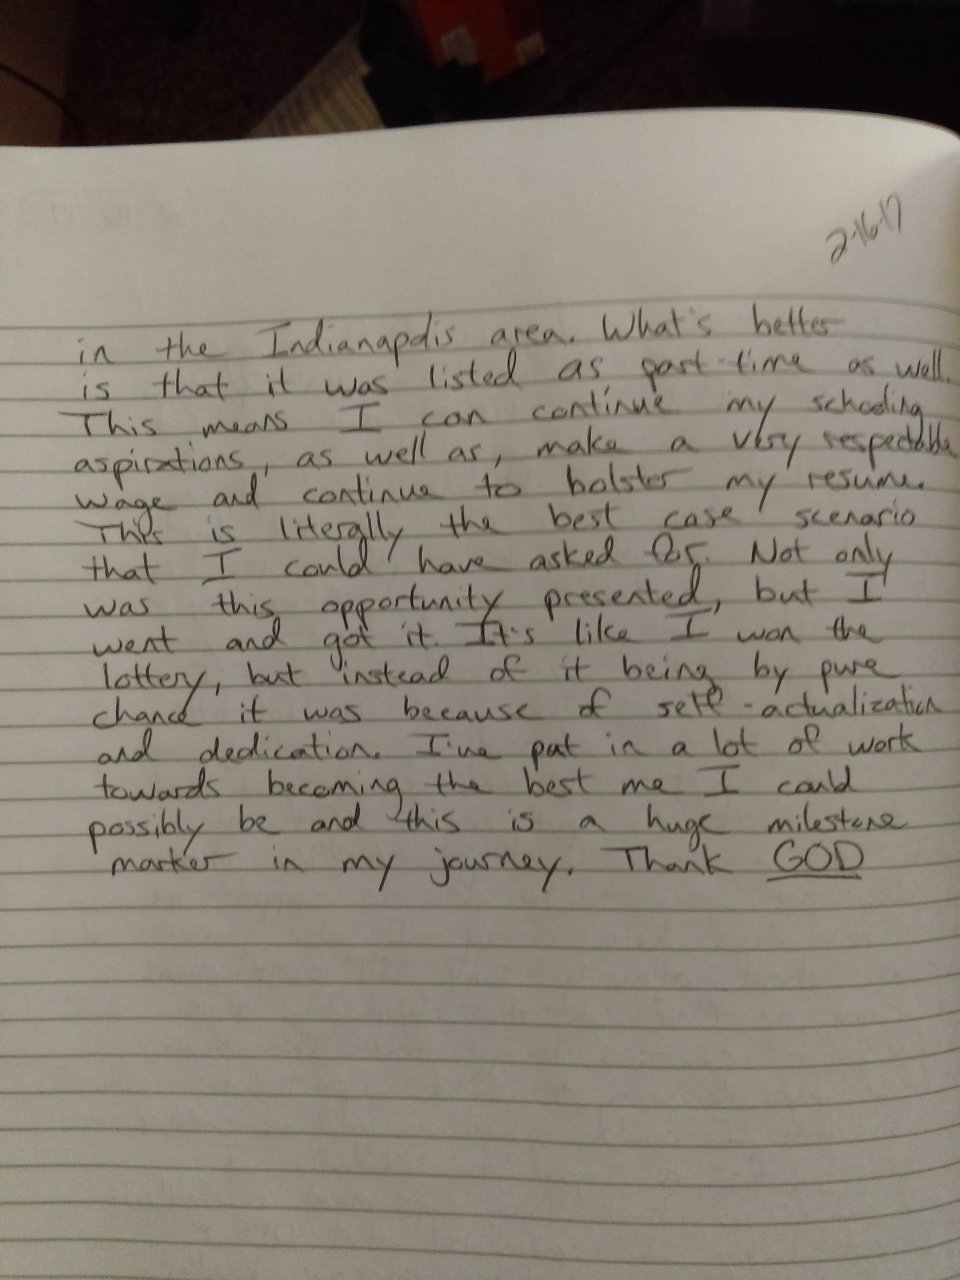 2-16-17
in the Indianapolis area. What's better
is that it was listed as part-time as well.
This means I can continue my schooling
aspirations, as well as, make a very respectable
wage and continue to bolster my resume.
This is literally the best case scenario
that I could have asked for. Not only
was this opportunity presented, but I
went and got it. It's like I won the
lottery, but instead of it being by pure
chance it was because of self-actualization
and dedication. I've put in a lot of work
towards becoming the best me I could
possibly be and this is a huge milestone
marker in my journey. Thank GOD